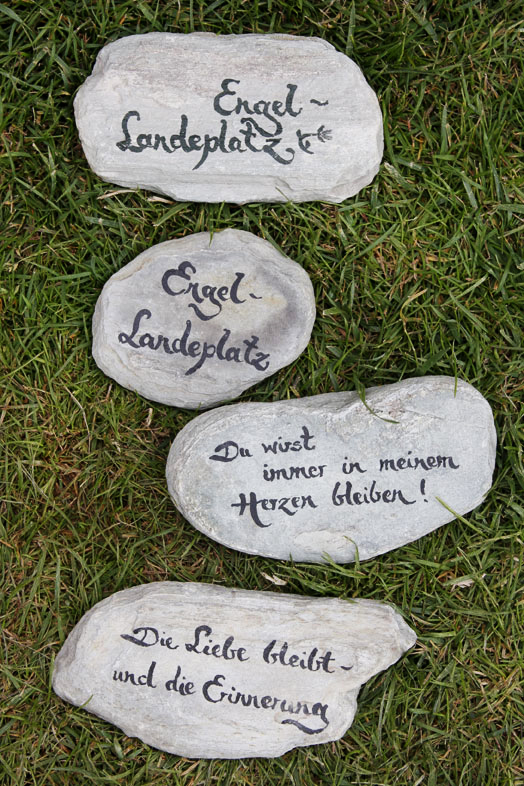 Engel-
Landeplatz
Engel-
Landeplatz
Du wirst
immer in meinem
Herzen bleiben!
Die Liebe bleibt-
und die Erinnerung